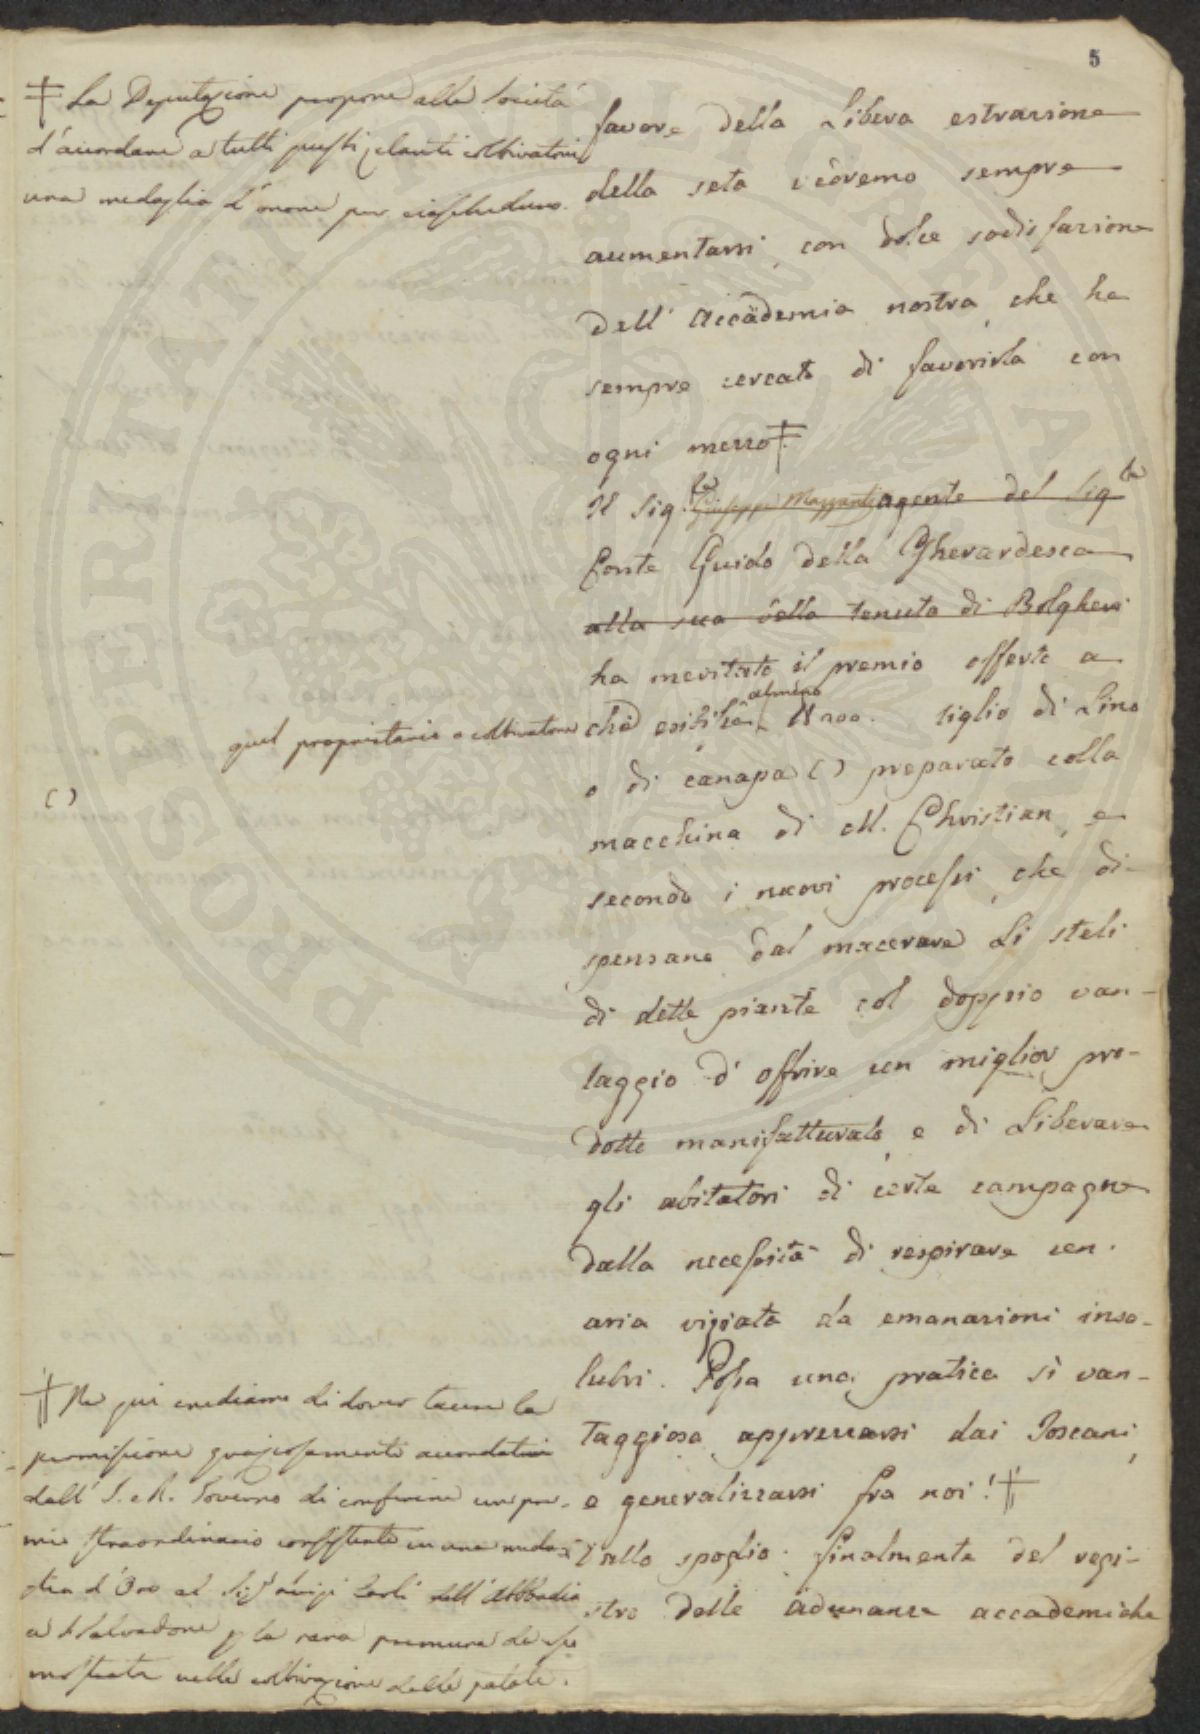 5
‡ La Deputazione propone alla Società
d'accordare a tutti questi zelanti coltivatori
una medaglia d'onore per ciascheduno.
favore della Libera estrazione
della seta vedremo sempre
aumentarsi, con dolce sodisfazione
dell' Accademia nostra, che ha
sempre cercato di favorirla con
ogni mezzo ‡
Il Sig.re Giuseppe Mazzanti agente del Sig.re
Conte Guido della Gherardesca
alla sua bella tenuta di Bolgheri
ha meritato il premio offerto a
quel proprietario o coltivatore che esibisse almeno
tiglio di Lino
( )
o di canapa ( ) preparato colla
macchina di M. Christian, e
secondo i nuovi processi, che di-
spensano dal macerare Li steli
di dette piante col doppio van-
taggio d' offrire un miglior pro-
dotto manifatturato, e di Liberare
gli abitatori di certe campagne
dalla necessità di respirare un'
aria viziata da emanazioni insa-
lubri. Possa una pratica sì van-
taggiosa apprezzarsi dai Toscani,
e generalizzarsi fra noi! ‡
Dallo spoglio finalmente del regi-
stro delle adunanze accademiche
‡ Ne qui crediamo di dover tacere la
permissione graziosamente accordataci
dall' I. e R. Governo di conferire un pre-
mio straordinario consistente in una meda-
glia d'Oro al Sig.r Luigi dell' Abbadia
a S. Salvadore p la rara premura da esso
mostrata nella coltivazione delle patate.